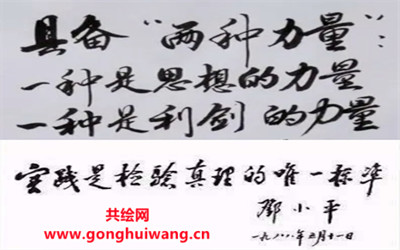 具备“两种力量”：
一种是思想的力量
一种是利剑的力量
实践是检验真理的唯一标准
邓小平
共绘网
www.gonghuiwang.cn